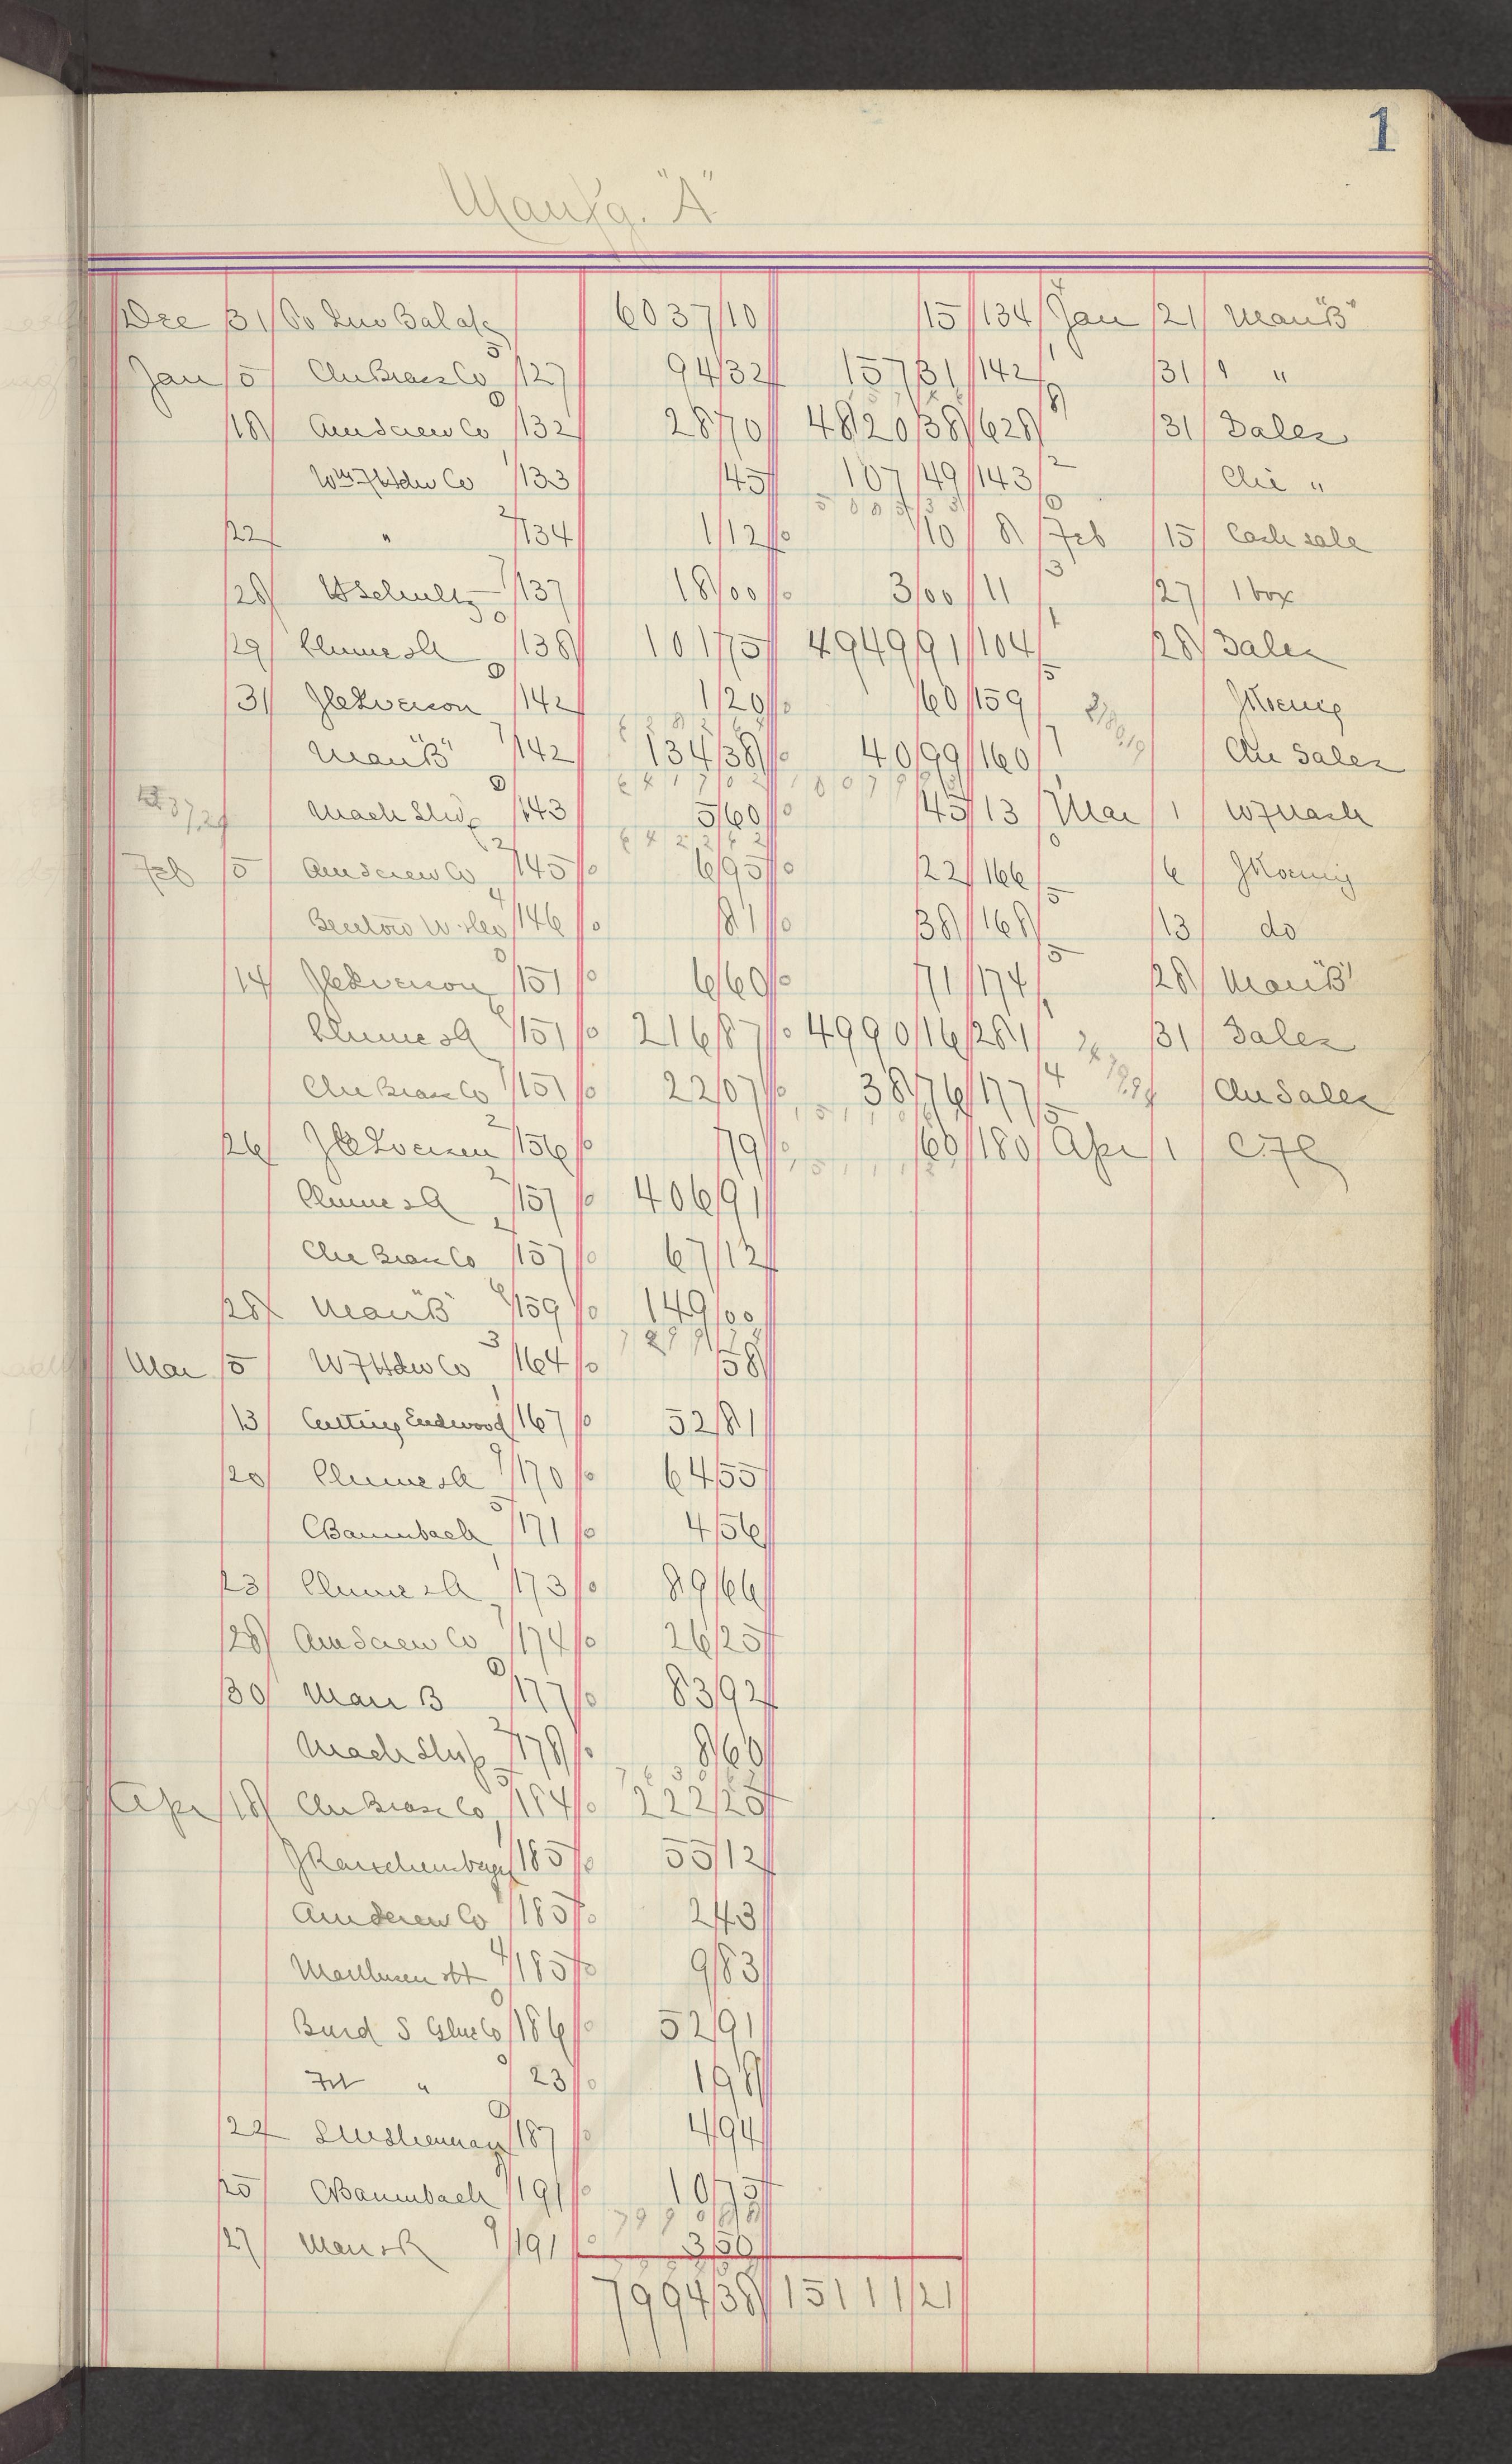 1
Manfg. "A"
Dec 31 To Inv Balance 6037 10 15 134 Jan 21 Man "B"
Jan 5 Chi Brass Co 127 94 32 157 31 142 31 " "
18 Am Screw Co 132 28 70 4820 38 628 31 Sales
Wm F Hdw Co 133 45 107 49 143 Chi "
22 " 134 1 12 10 8 Feb 15 Cash sale
28 H Schultz 137 18 00 3 00 11 27 1 box
29 Plume & A 138 101 75 4949 91 104 28 Sales
31 142 1 20 60 159 J Koenig
Man "B" 142 134 38 40 99 160 Chi Sales
Mach Shop 143 5 60 45 13 Mar 1 W F Nash
Feb 5 Am Screw Co 145 6 95 22 166 6 J Koenig
146 81 38 168 13 do
14 151 6 60 71 174 28 Man "B"
Plume & A 151 216 87 4990 16 281 31 Sales
Chi Brass Co 151 22 07 38 76 177 Chi Sales
26 156 79 60 180 Apr 1
Plume & A 157 406 91
Chi Brass Co 157 67 12
28 Man "B" 159 149 00
Mar 5 W F Hdw Co 164 58
13 Cutting Endwood 167 52 81
20 Plume & A 170 64 55
C Baumbach 171 4 56
23 Plume & A 173 89 66
28 Am Screw Co 174 26 25
30 Man B 177 83 92
Mach Shop 178 8 60
Apr 18 Chi Brass Co 184 222 25
185 55 12
Am Screw Co 185 2 43
185 9 83
Burd S Glue Co 186 52 91
Frt " 23 1 98
22 187 4 94
25 C Baumbach 191 10 75
27 191 3 50
7994 38 15111 21